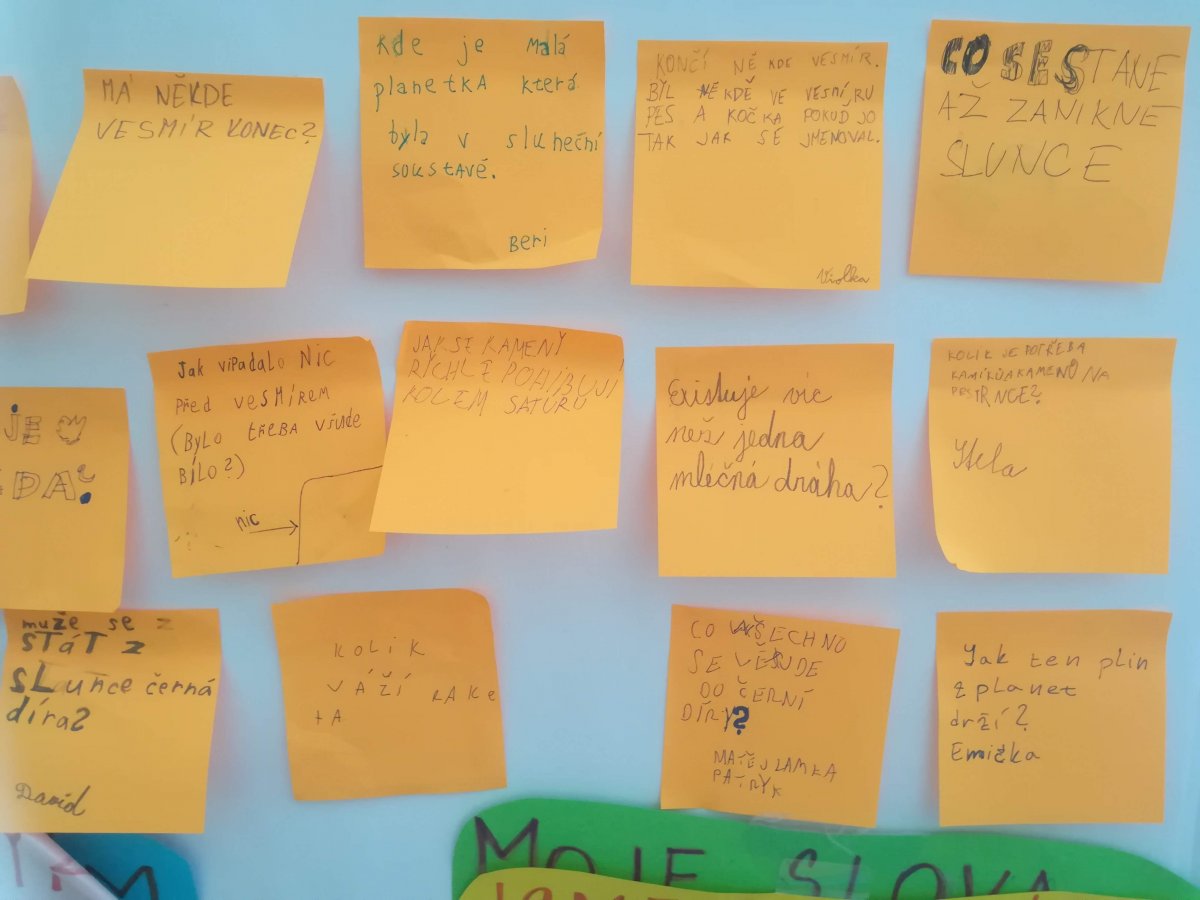 MÁ NĚKDE
VESMÍR KONEC?
Kde je malá
planetka která
byla v sluneční
soustavě.
Beri
KONČÍ NĚKDE VESMÍR.
BYL NEKDĚ VE VESMÍRU
PES A KOČKA POKUD JO
TAK JAK SE JMENOVAL.
Violka
CO SE STANE
AŽ ZANIKNE
SLUNCE
JE
DA?
Jak vipadalo Nic
Před vesmírem
(Bylo třeba všude
Bílo?)
nic
JAK SE KAMENY
RYCHLE POHIBUJÍ
KOLEM SATURU
Existuje víc
než jedna
mléčná dráha?
KOLIK JE POTŘEBA
KAMÍKŮAKAMENŮ NA
PRSTRNCE?
Stela
muže se z
STáT z
SLunce černá
díra?
David
KOLIK
VÁŽÍ RAKE
tA
CO VŠECHNO
SE VEJDE
DO ČERNÍ
DÍRY?
MATĚJ LAMKA
PATRYK
Jak ten plin
z planet
drží?
Emička
MOJE SLOVA